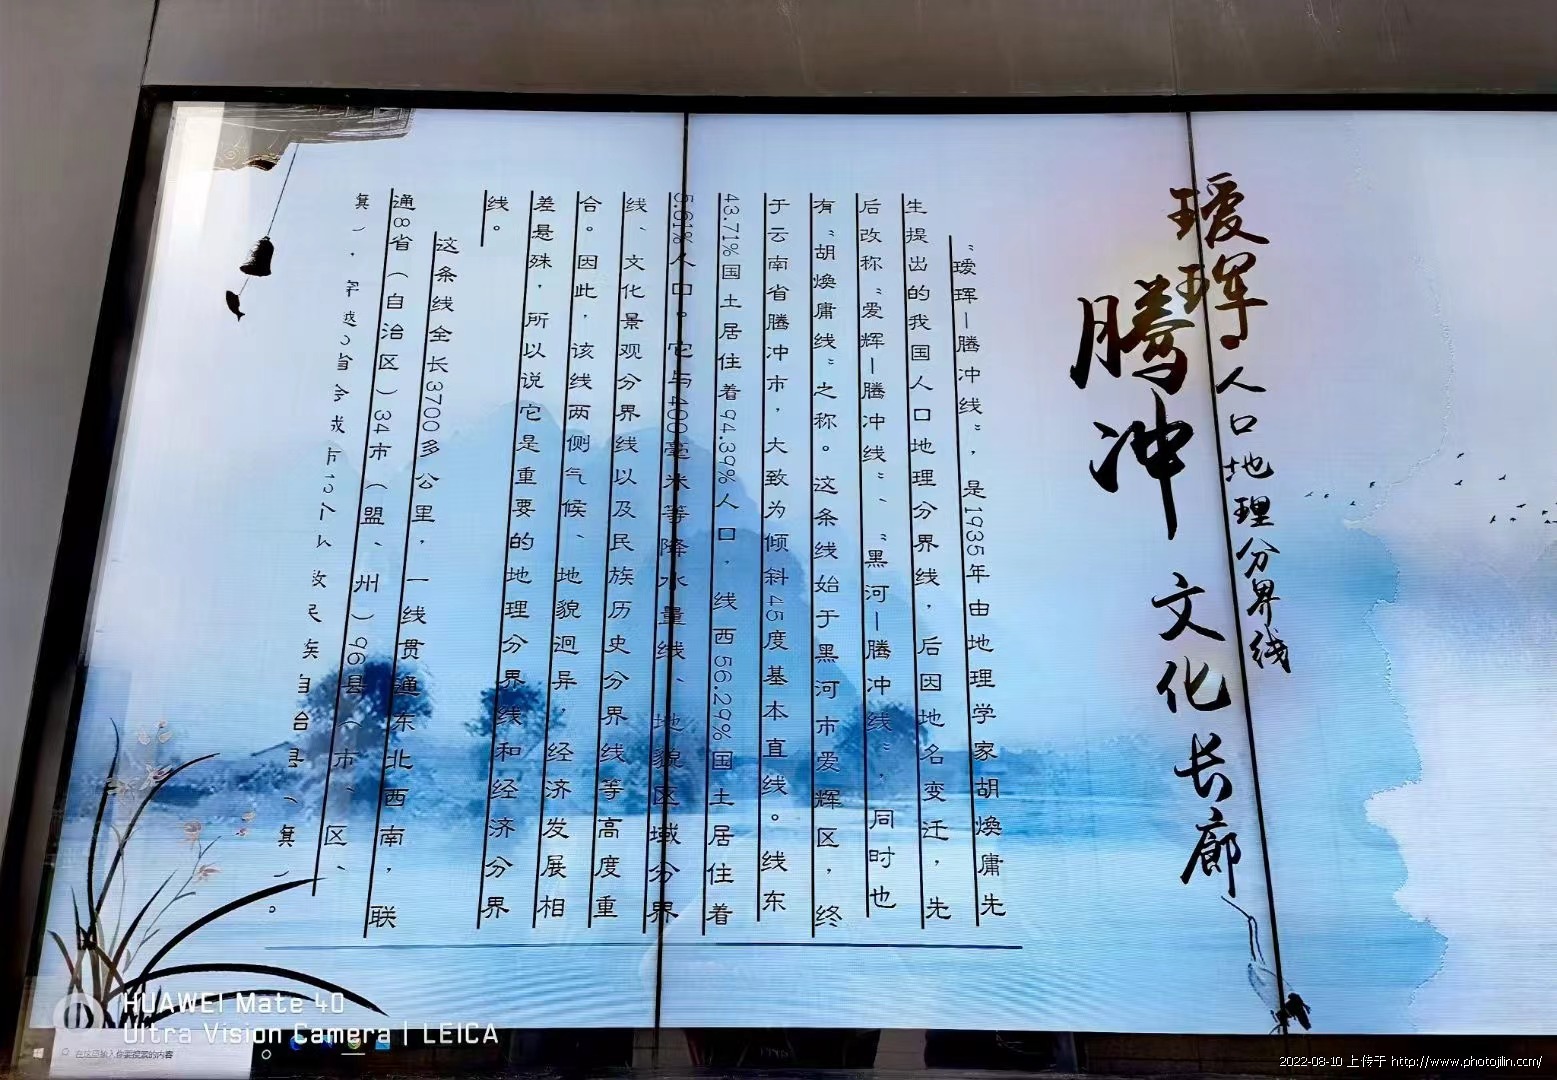 瑷珲 人口地理分界线
腾冲 文化长廊
“瑷珲—腾冲线”，是1935年由地理学家胡煥庸先
生提出的我国人口地理分界线，后因地名变迁，先
后改称“爱辉—腾冲线”、“黑河—腾冲线”，同时也
有“胡煥庸线”之称。这条线始于黑河市爱辉区，终
于云南省腾冲市，大致为倾斜45度基本直线。线东
43.71%国土居住着94.39%人口，线西56.29%国土居住着
5.61%人口。它与400毫米等降水量线、地貌区域分界
线、文化景观分界线以及民族历史分界线等高度重
合。因此，该线两侧气候、地貌迥异，经济发展相
差悬殊，所以说它是重要的地理分界线和经济分界
线。
这条线全长3700多公里，一线贯通东北西南，联
通8省（自治区）34市（盟、州）96县（市、区、
HUAWEI Mate 40
Ultra Vision Camera | LEICA
在这里输入你要搜索的内容
2022-08-10 上传于 http://www.photojilin.com/